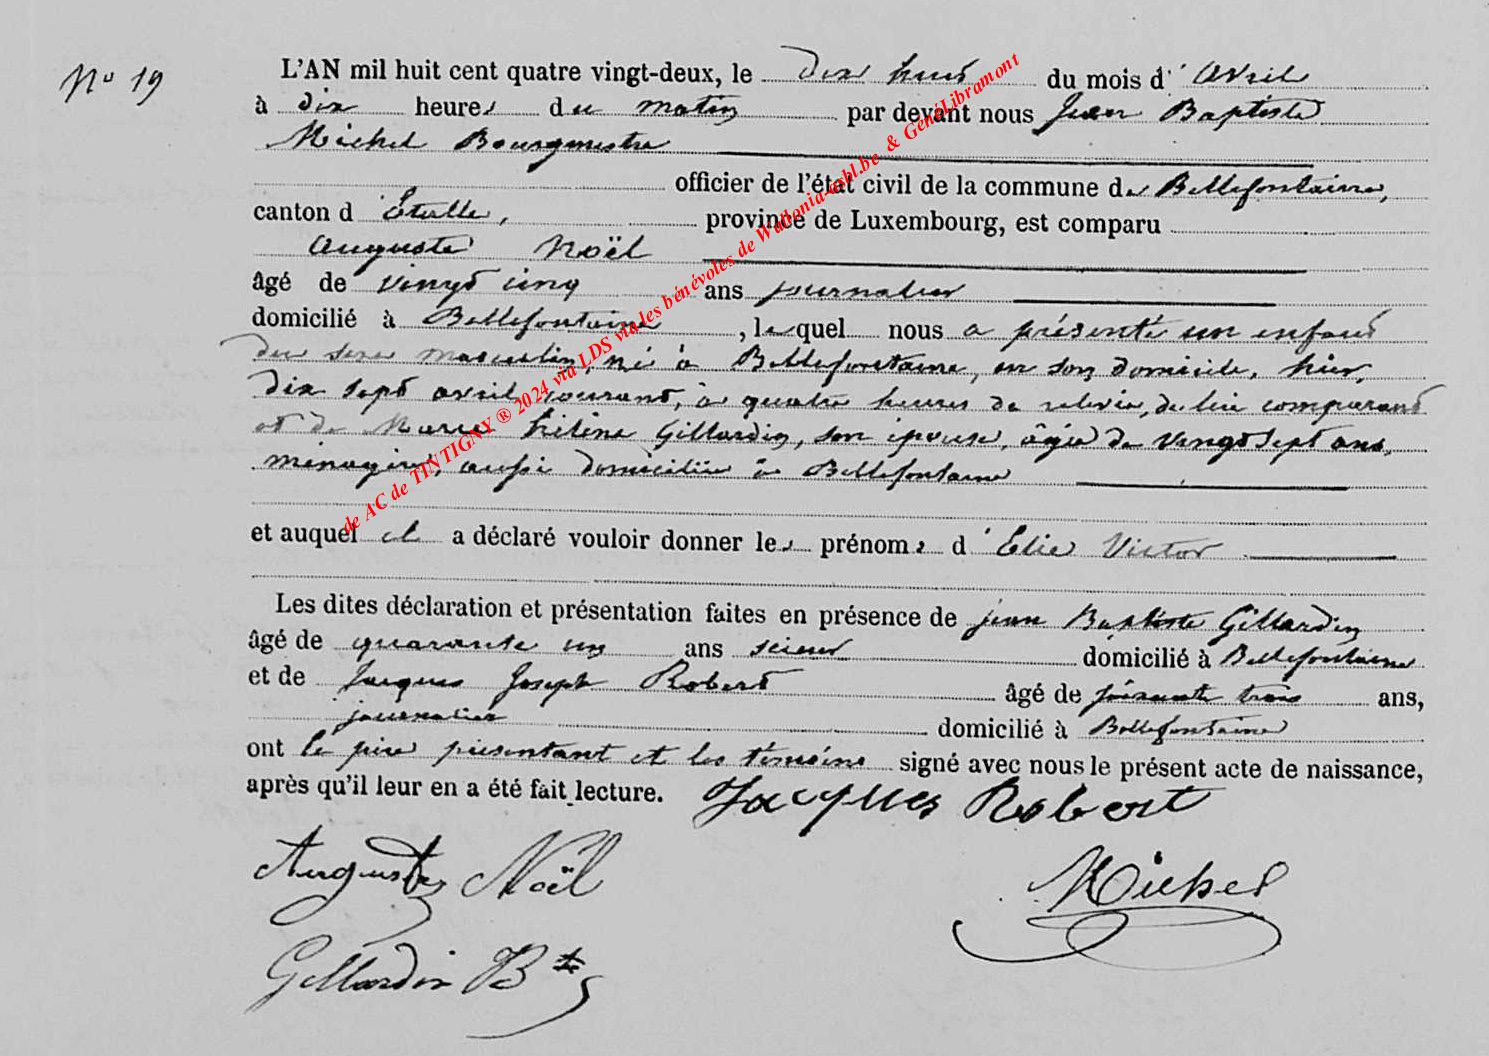 N° 19
L'AN mil huit cent quatre vingt-deux, le dix huit du mois d'avril
à dix heures du matin par devant nous Jean Baptiste
Michel Bourgmestre
officier de l'état civil de la commune de Bellefontaine,
canton d'Etalle, province de Luxembourg, est comparu
Auguste Noël
âgé de vingt cinq ans journalier
domicilié à Bellefontaine, lequel nous a présenté un enfant
du sexe masculin, né à Bellefontaine, en son domicile, hier,
dix sept avril courant, à quatre heures de relevée, de lui comparant
et de Marie Hélène Gillardin, son épouse, âgée de vingt sept ans,
ménagère, aussi domiciliée à Bellefontaine
et auquel il a déclaré vouloir donner les prénoms d'Elie Victor
Les dites déclaration et présentation faites en présence de jean Baptiste Gillardin
âgé de quarante un ans scieur domicilié à Bellefontaine
et de Jacques Joseph Robert âgé de soixante trois ans,
journalier domicilié à Bellefontaine
ont le père présentant et les témoins signé avec nous le présent acte de naissance,
après qu'il leur en a été fait lecture. Jacques Robert
Auguste Noël
Michel
Gillardin Bte
de AC de TINTIGNY ® 2024 via LDS via les bénévoles de Wallonia-asbl.be & GénéLibramont